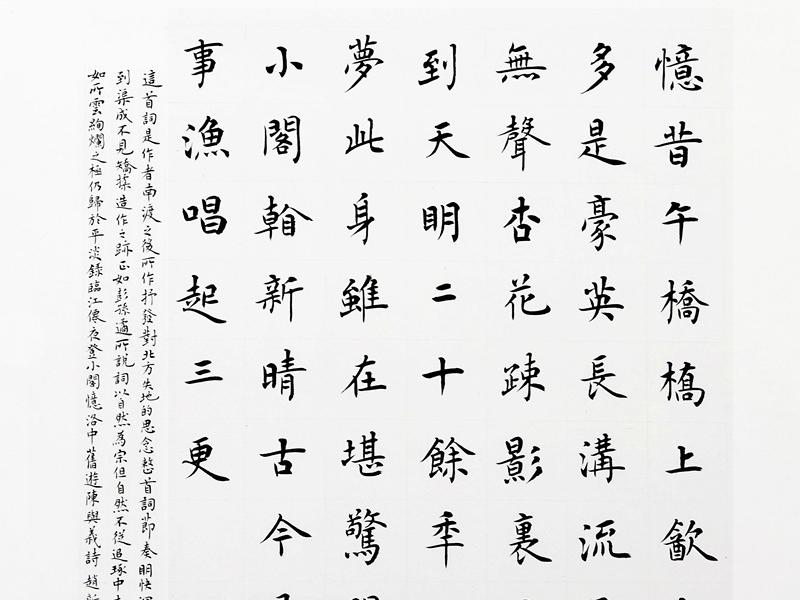 憶昔午橋橋上㱃
多是豪英長溝流
無聲杏花疎影裏
到天明二十餘年
夢此身雖在堪驚
小閣看新晴古今
事漁唱起三更
這首詞是作者南渡之後所作抒發對北方失地的思念整首詞節奏明快
到渠成不見矯揉造作之跡正如彭孫遹所說詞以自然為宗但自然不從追琢中
如所雲絢爛之極仍歸於平淡錄臨江僊夜登小閣憶洛中舊遊陳與義詩 趙